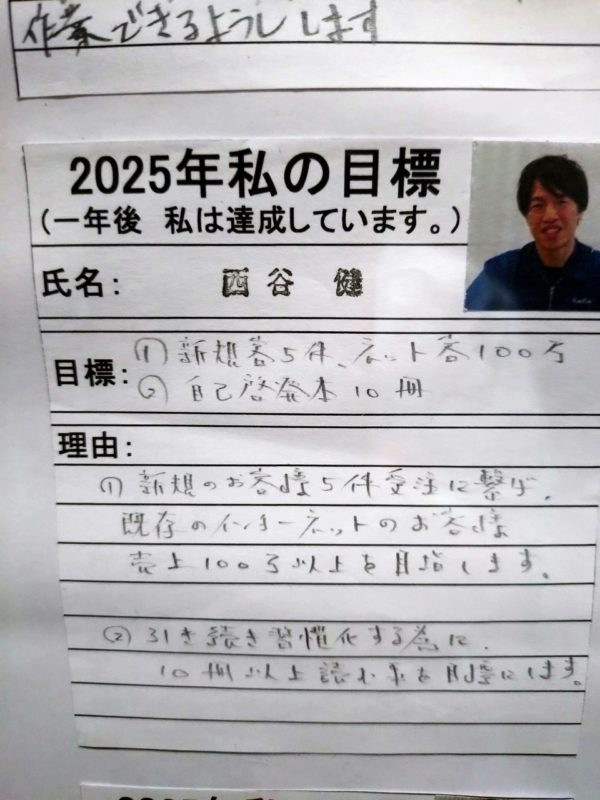 作業できるようします
2025年私の目標
(一年後 私は達成しています。)
氏名: 西谷 健
目標: ① 新規客5件、ネット客100万
② 自己啓発本10冊
理由:
① 新規のお客様5件受注に繋げ、
既存のインターネットのお客様
売上100万以上を目指します。
② 引き続き習慣化する為に、
10冊以上読む事を目標にします。